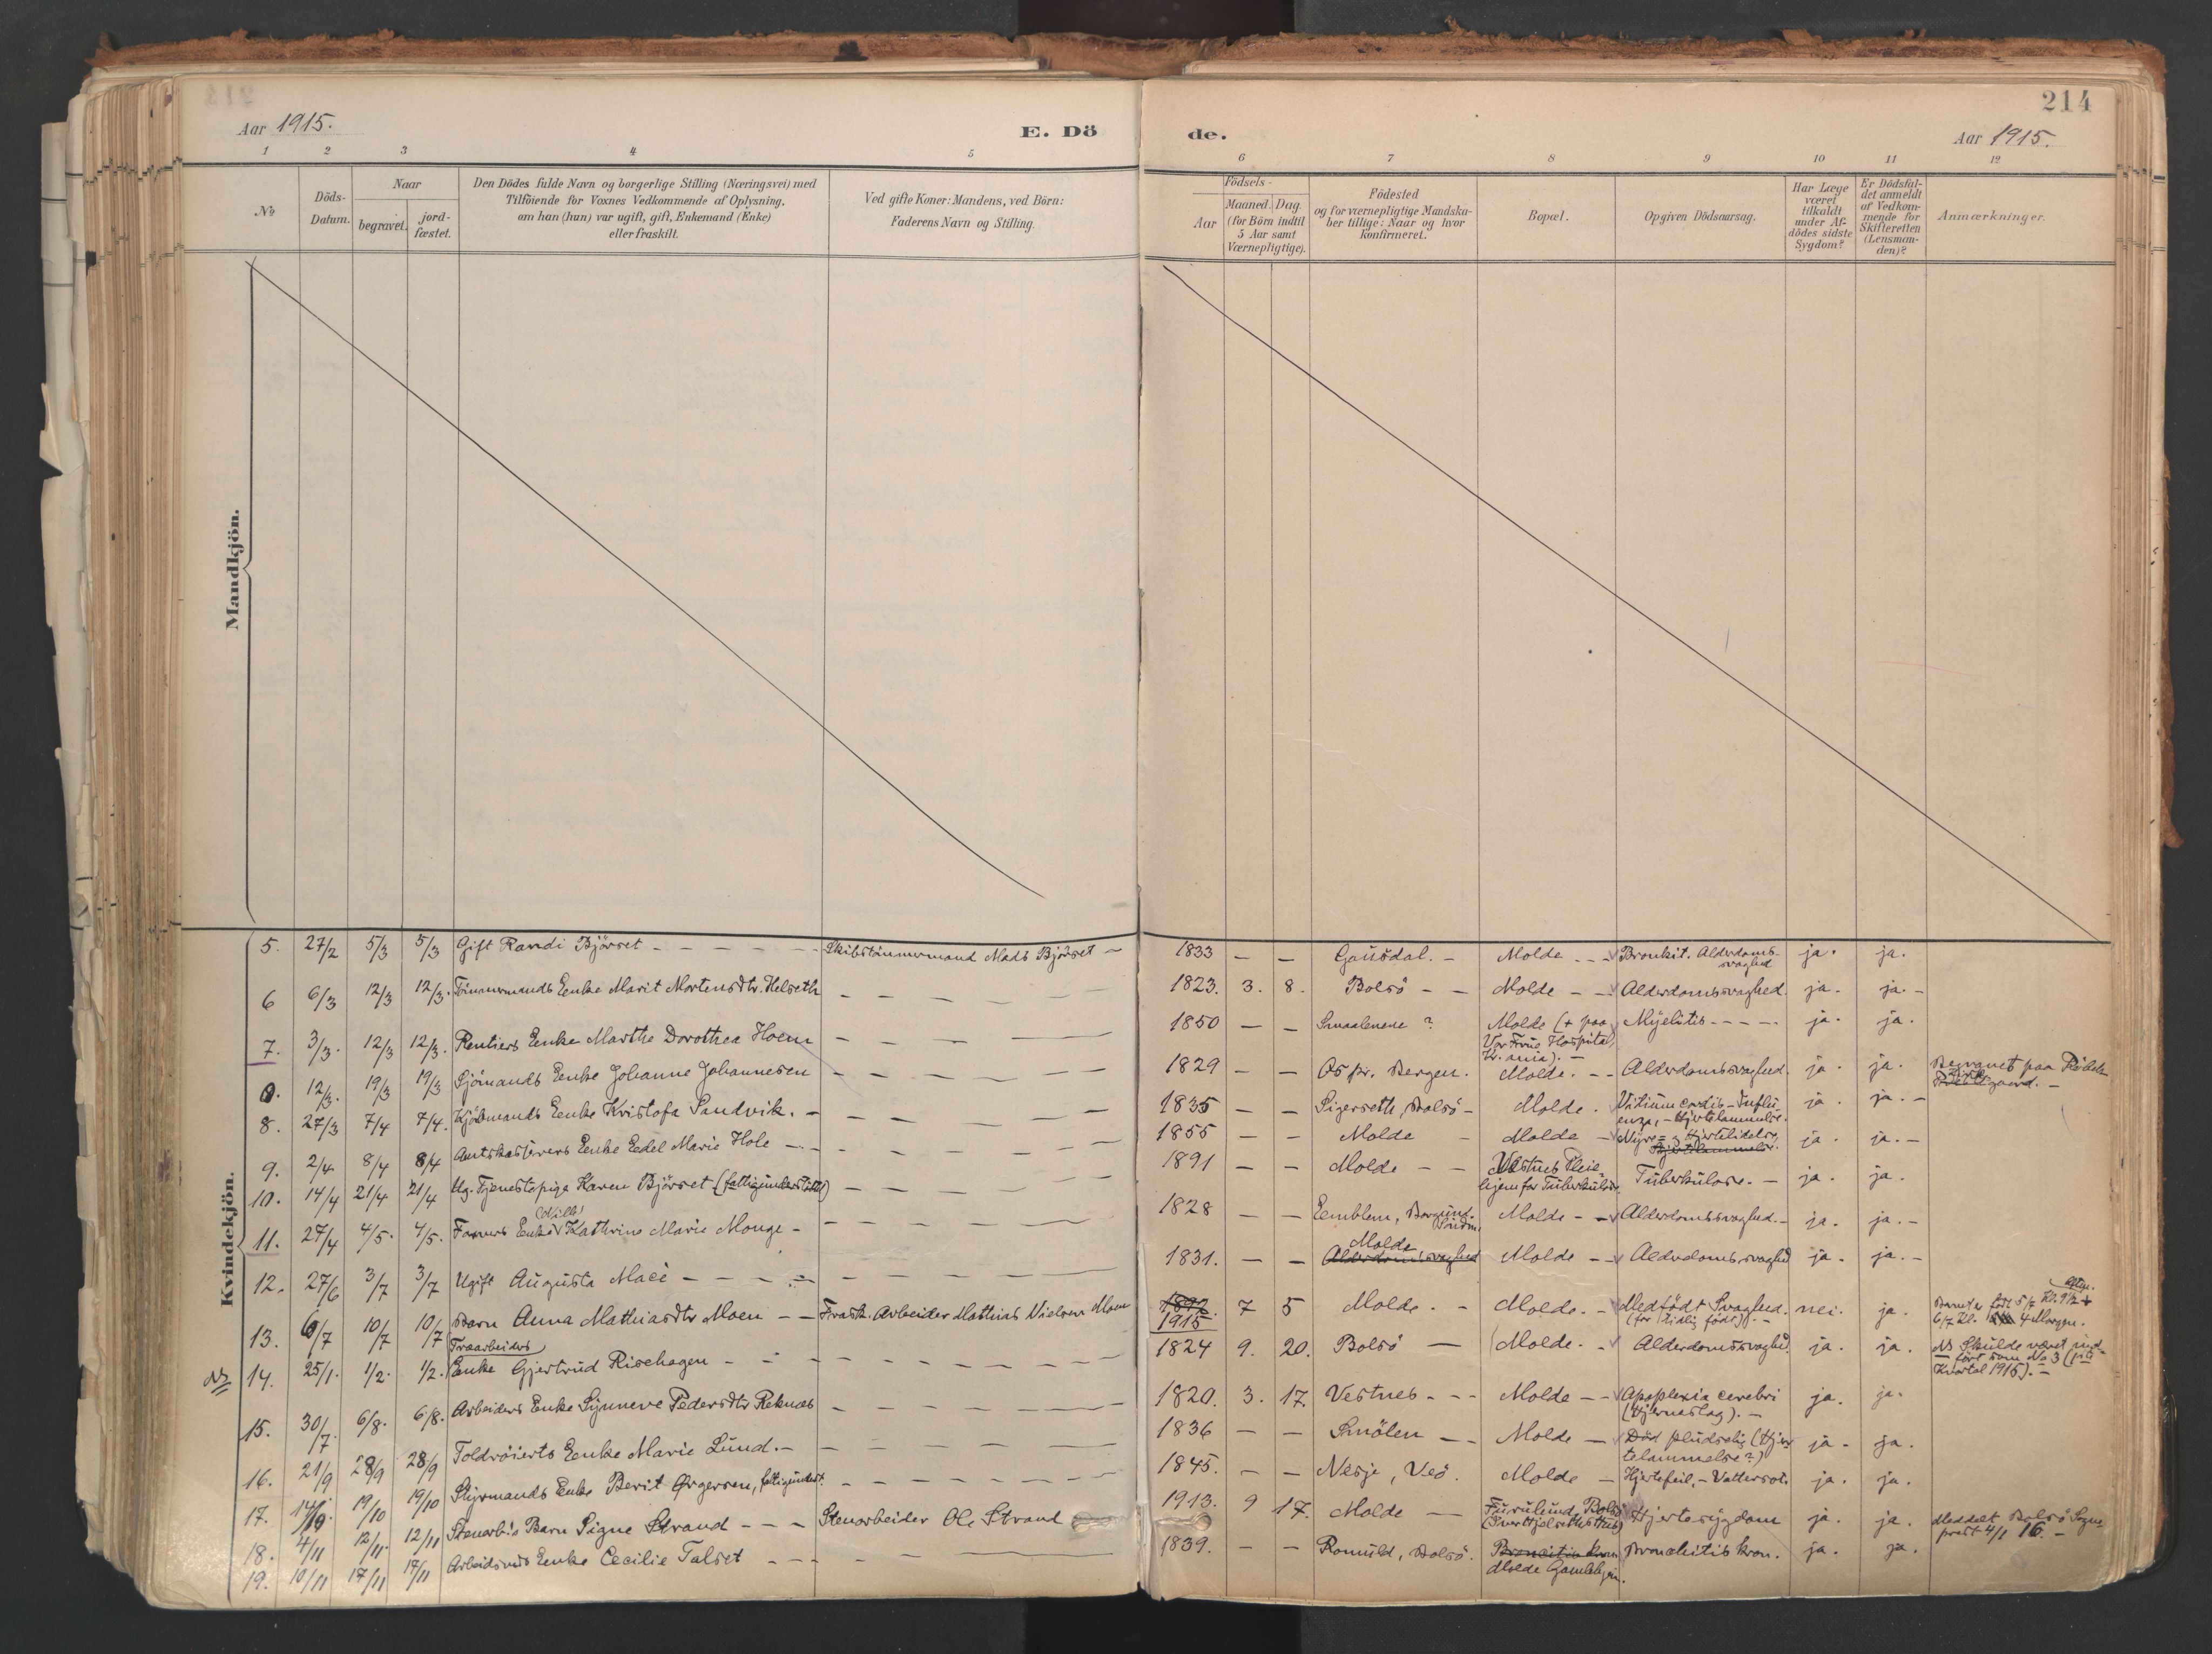 214
Aar 1915.
E. Dö
de.
Aar 1915.
1 2 3 4 5 6 7 8 9 10 11 12
No
Döds-
Datum.
Naar
begravet.
jord-
fæstet.
Den Dödes fulde Navn og borgerlige Stilling (Næringsvei) med
Tilföiende for Voxnes Vedkommende af Oplysning,
om han (hun) var ugift, gift, Enkemand (Enke)
eller fraskilt.
Ved gifte Koner: Mandens, ved Börn:
Faderens Navn og Stilling.
Födsels-
Aar
Maaned. Dag.
(for Börn indtil
5 Aar samt
Værnepligtige).
Födested
og for værnepligtige Mandska-
ber tillige: Naar og hvor
konfirmeret.
Bopæl.
Opgiven Dödsaarsag.
Har Læge
været
tilkaldt
under Af-
dödes sidste
Sygdom?
Er Dödsfal-
det anmeldt
af Vedkom-
mende for
Skifteretten
(Lensman-
den)?
Anmærkninger.
Mandkjön.
Kvindekjön.
5. 27/2 5/3 5/3 Gift Randi Björset - - - - Skibstömmermand Mads Björset - 1833 - - Gausdal. - Molde - - Bronkit. Alderdoms-
svaghed ja. ja.
6 6/3 12/3 12/3. Tömmermands Enke Marit Mortensdtr. Helseth - - - - 1823. 3. 8. Bolsö - - Molde - - Alderdomssvaghed. ja. ja. -
7. 3/3. 12/3 12/3. Rentiers Enke Marthe Dorothea Hoem - - - - 1850 - - Smaalenene ? Molde (+ paa
Vor Frue Hospital,
Kr.ania). - Myelitis - - - - ja. ja.
8. 12/3. 19/3 19/3 Sjömands Enke Johanne Johannesen - - - - 1829 - - Os pr. Bergen. Molde. - - Alderdomssvaghed. ja. ja. Begravet paa Röbek
Kirkegaard. -
8. 27/3 7/4 7/4. Kjöbmands Enke Kristofa Sandvik. - - - - 1835 - - Sigerseth, Bolsö - Molde. Vitium cordis - Influ-
enza, - Hjertelammelse. ja. ja. -
9. 2/4 8/4 8/4 Amtskasserers Enke Edel Marie Hole - - - - 1855 - - Molde - Molde - Nyre- og Hjertelidelse.
Hjertelammelse. ja. ja. -
10. 14/4 21/4 21/4 Ug. Tjenestepige Karen Björset (fattigunderstöttet) - - - - 1891 - - Molde - - Vestnes Pleie-
hjem for Tuberkulose. Tuberkulose. - ja. ja.
11. 27/4 4/5. 4/5. Farvers Enke Kathrine Marie Monge - - - - 1828 - - Emblem, Borgund. Molde - - Alderdomssvaghed. - ja. ja. -
12. 27/6 3/7 3/7 Ugift Augusta Mace - - - - 1831. - - Molde
Alderdomssvaghed Molde - - Alderdomssvaghed ja. ja. -
13. 6/7 10/7 10/7 Barn Anna Mathiasdtr Moen - - Frask. Arbeider Mathias Nielsen Moen 1892.
1915 7 5 Molde. - Molde. - Medfödt Svaghed.
(for tidlig födt). - nei. ja. Barnet er födt 5/7 Kl. 9 1/2 Aften. +
6/7 Kl. 4 Morgen.
NB 14. 25/1. 1/2. 1/2. Træarbeiders
Enke Gjertrud Risehagen - - - - 1824 9. 20. Bolsö - Molde. - Alderdomssvaghed. ja. ja. NB Skulde været ind-
fört som No 3 (1ste
Kvartal 1915). -
15. 30/7. 6/8. 6/8. Arbeiders Enke Synneve Pedersdtr Reknæs - - - - 1820. 3. 17. Vestnes - - - Molde - - Apoplexia cerebri
(Hjerneslag). - ja. ja.
16. 21/9 28/9 28/9 Toldröierts Enke Marie Lund. - - - - 1836 - - Smölen - - Molde - Död pludselig (Hjer-
telammelse?) ja. ja.
17. 14/10. 19/10 19/10 Styrmands Enke Berit Ørgersen, fattigunderst. - - - - 1845. - - Nesje, Veö. Molde - Hjertefeil. - Vattersot. ja. ja.
18. 4/11 12/11. 12/11 Stenarb.s Barn Signe Strand - - - Stenarbeider Ole Strand 1913. 9 17. Molde - Furulund, Bolsö Hjertesygdom ja. ja. Meddelt Bolsö Sogne-
prest 4/1 16. -
19. 10/11 17/11 17/11 Arbeiders Enke Cecilie Talset - - - - 1839. - - Romuld, Bolsö. Broncitis kron
Molde Gamlehjem. Bronchitis kron. ja. ja.